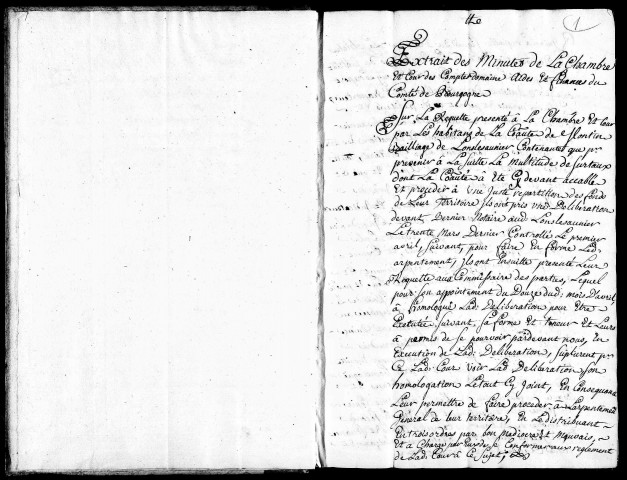 1
Extrait des Minutes de La Chambre
et Cour des Comptes domaine Aides et finances du
Comté de Bourgogne
Sur La Requette presenté à La Chambre et Cour
par Les habitans de La Coauté de
Bailliage de Lonslesaunier Contenantes que pr
prevenir à La Suitte La Multitude de surtaux
dont La Coauté à èté Cy devant accable
Et proceder à vne Juste repartition des fonds
de Leur Territoire ils ont pris vne Deliberation
devant Dernier Notaire aud Lonslesaunier
Le trente Mars Dernier Controllé Le premier
avril, Suivant, pour faire En forme Lad:
arpentement, ils ont Ensuitte presenté Leur
Requette aux Commissaire des parties, Lequel
pour Son appointement du Douze dud: mois D'avril
à homologué Lad: Deliberation pour être
Executée suivant, sa forme Et teneur Et Leurs
à permis de se pourvoir pardevant nous, En
Execution de Lad: Deliberation, suplient pr
Ce Lad: Cour voir Lad Deliberation, son
homologation Letout Cy Joint, En Consequance
Leur permettre de faire proceder à Larpentement
General de leur territoire, En Le distribuant
En trois ordres par bon Mediocre Et Mauvais,
Et à Charge par Eux de se Conformer aux reglement
de Lad: Cour à Ce Sujet;